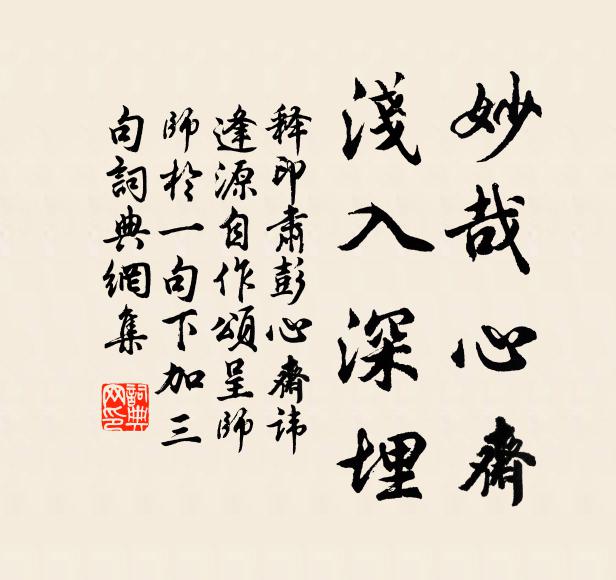 妙哉心齋
淺入深埋
释印肃彭心齋諱
逢源自作頌呈師
師於一句下加三
句詞典網集
詞典
网印